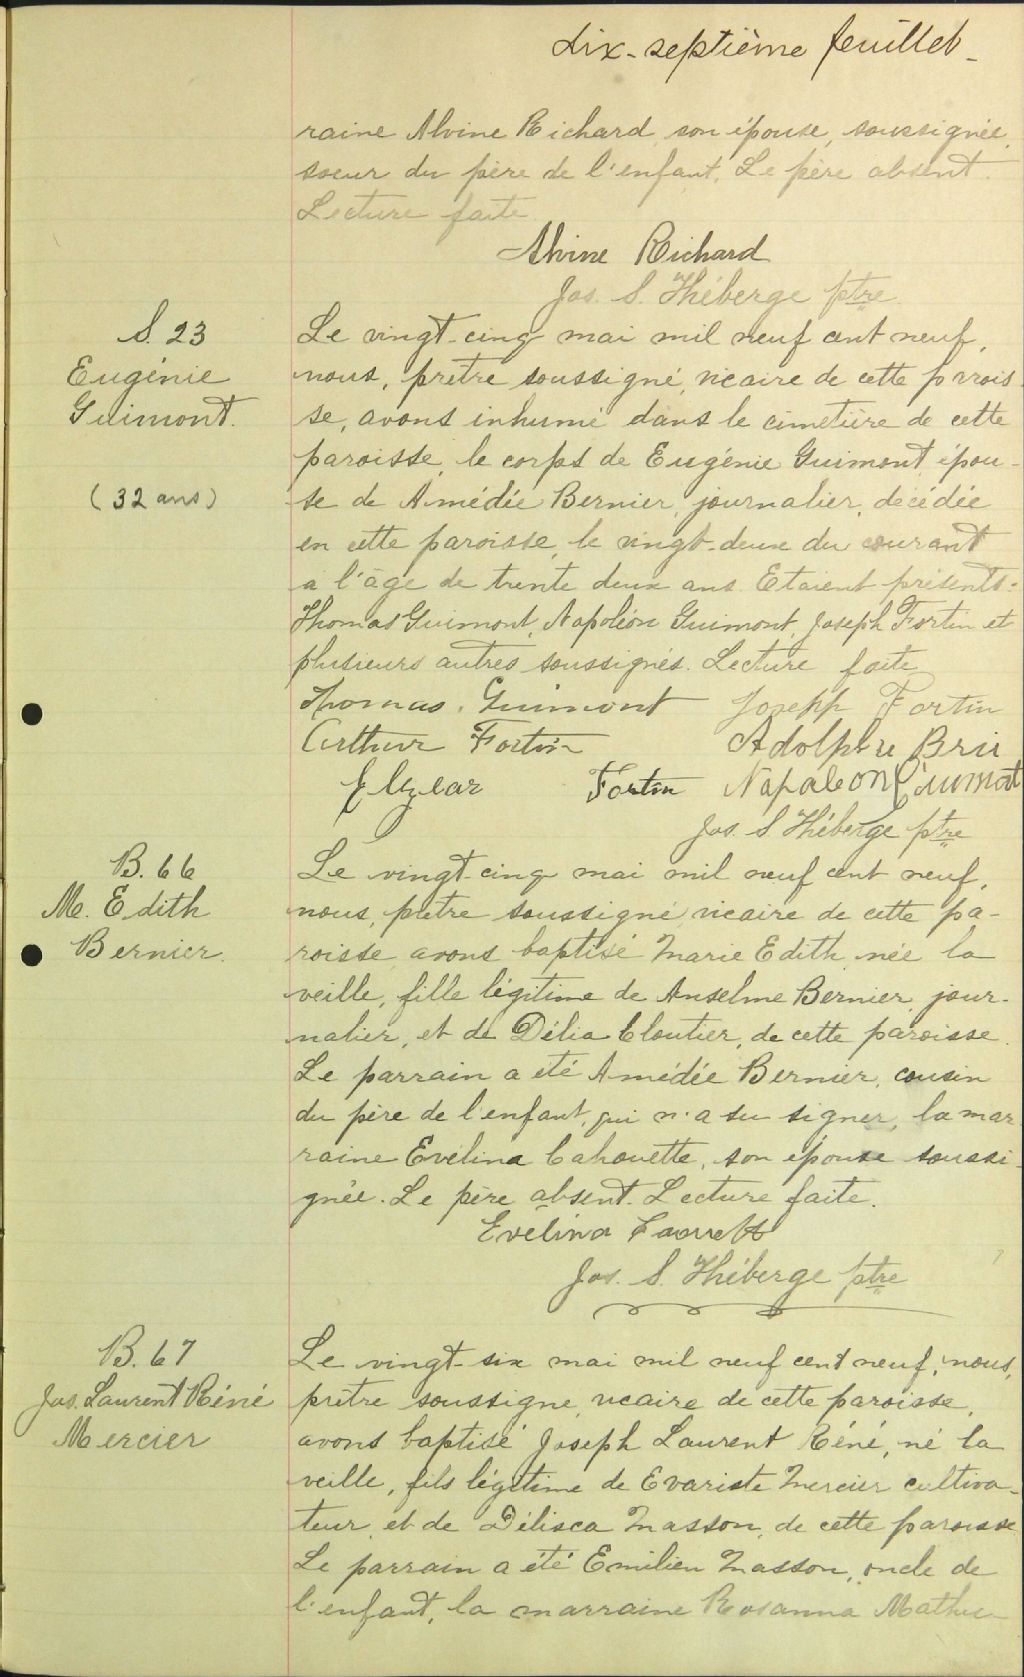 dix-septième feuillet-
raine Alvine Richard, son épouse, soussignée,
soeur du père de l'enfant. Le père absent.
Lecture faite.
Alvine Richard
Jos. S. Théberge ptre
S. 23
Eugénie
Guimont.
(32 ans)
Le vingt-cinq mai mil neuf cent neuf,
nous, prêtre soussigné, vicaire de cette parois-
se, avons inhumé dans le cimetière de cette
paroisse, le corps de Eugénie Guimont, épou-
se de Amédée Bernier, journalier, décédée
en cette paroisse, le vingt-deux du courant
à l'âge de trente deux ans. Etaient présents:
Thomas Guimont, Napoléon Guimont, Joseph Fortin et
plusieurs autres soussignés. Lecture faite
Thomas. Guimont Joseph Fortin
Arthur Fortin Adolphe
Elzear Fortin Napoleon Guimont
Jos. S. Théberge ptre
B. 66
M. Edith
Bernier.
Le vingt-cinq mai mil neuf cent neuf,
nous, prêtre soussigné, vicaire de cette pa-
roisse, avons baptisé Marie Edith, née la
veille, fille légitime de Anselme Bernier, jour-
nalier, et de Délia Cloutier, de cette paroisse.
Le parrain a été Amédée Bernier, cousin
du père de l'enfant, qui n'a su signer, la mar-
raine Evélina Cahouette, son épouse soussi-
gnée. Le père absent. Lecture faite.
Evélina
Jos. S. Théberge ptre
B. 67
Jos. Laurent Réné
Mercier
Le vingt-six mai mil neuf cent neuf, nous,
prêtre soussigné, vicaire de cette paroisse,
avons baptisé Joseph Laurent Réné, né la
veille, fils légitime de Evariste Mercier cultiva-
teur, et de Délisca Masson, de cette paroisse.
Le parrain a été Emilien Masson, oncle de
l'enfant, la marraine Rosanna Mathieu